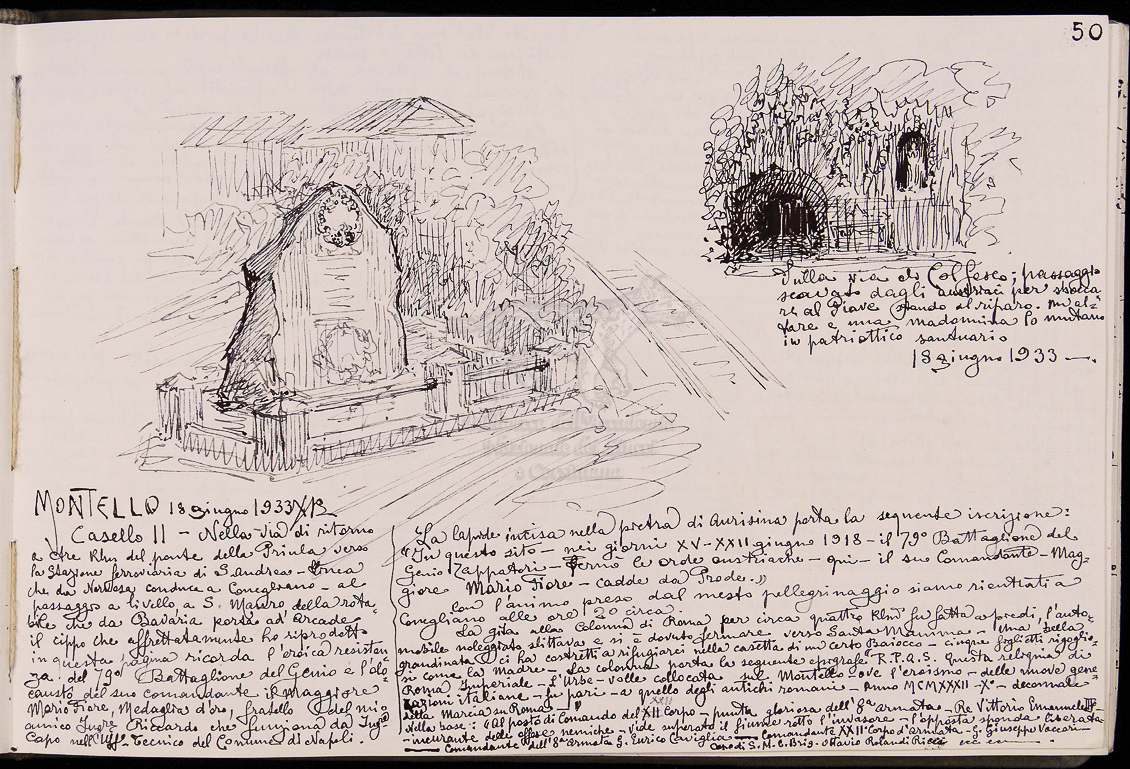 50
Sulla via di Colfosco; passaggio
scavato dagli austriaci per sbocca
re al Piave stando al riparo. Un al=
tare e una madonnina lo mutano
in patriottico santuario
18 giugno 1933
MONTELLO 18 giugno 1933 XI
Casello 11 - Nella via di ritorno
a tre Klm del ponte della Priula verso
la stazione ferroviaria di S. Andrea - linea
che da Nervesa conduce a Conegliano - al
passaggio a livello, a S. Mauro, della rota=
bile che da Bavaria porta ad Arcade
il cippo che affrettatamente ho riprodotto
in questa pagina ricorda l'eroica resisten
za del 79º Battaglione del Genio e l'olo
causto del suo comandante il Maggiore
Mario Fiore, Medaglia d'oro, fratello del mio
amico Ingre Riccardo che funziona da Ingre
Capo nell'Uff. Tecnico del Comune di Napoli.
La lapide incisa nella pietra di Aurisina porta la seguente iscrizione:
"In questo sito - nei giorni XV-XXII giugno 1918 - il 79º Battaglione del
Genio Zappatori - fermò le orde austriache - qui - il suo Comandante - Mag=
giore Mario Fiore - cadde da Prode."
Con l'animo preso dal mesto pellegrinaggio siamo rientrati a
Conegliano alle ore 20 circa.
La gita alla Colonna di Roma per circa quattro Klm fu fatta a piedi, l'auto=
mobile noleggiata slittava e si è dovuto fermare verso Santa Mamma - Una bella
grandinata ci ha costretti a rifugiarci nella casetta di un certo Baiocco - cinque figliotti rigoglio=
si come la madre - La colonna porta la seguente epigrafe: S.P.Q.R. Questa reliquia di
Roma Imperiale - l'Urbe - volle collocata sul Montello - ove l'eroismo - delle nuove gene
razioni italiane - fu pari - a quello degli antichi romani - Anno MCMXXXII - Xº - decennale
della Marcia su Roma"
Nella base: "Al posto di Comando del XXII Corpo - punta gloriosa dell'8ª armata - Re Vittorio Emanuele III
- incurante delle offese nemiche - vide superato il fiume rotto l'invasore - l'opposta sponda liberata
- Comandante dell'8ª armata G. Enrico Caviglia - Comandante XXII Corpo d'armata - G. Giuseppe Vaccari
Capo di S.M. C. Brig. Ottavio Rolandi Ricci ecc ecc